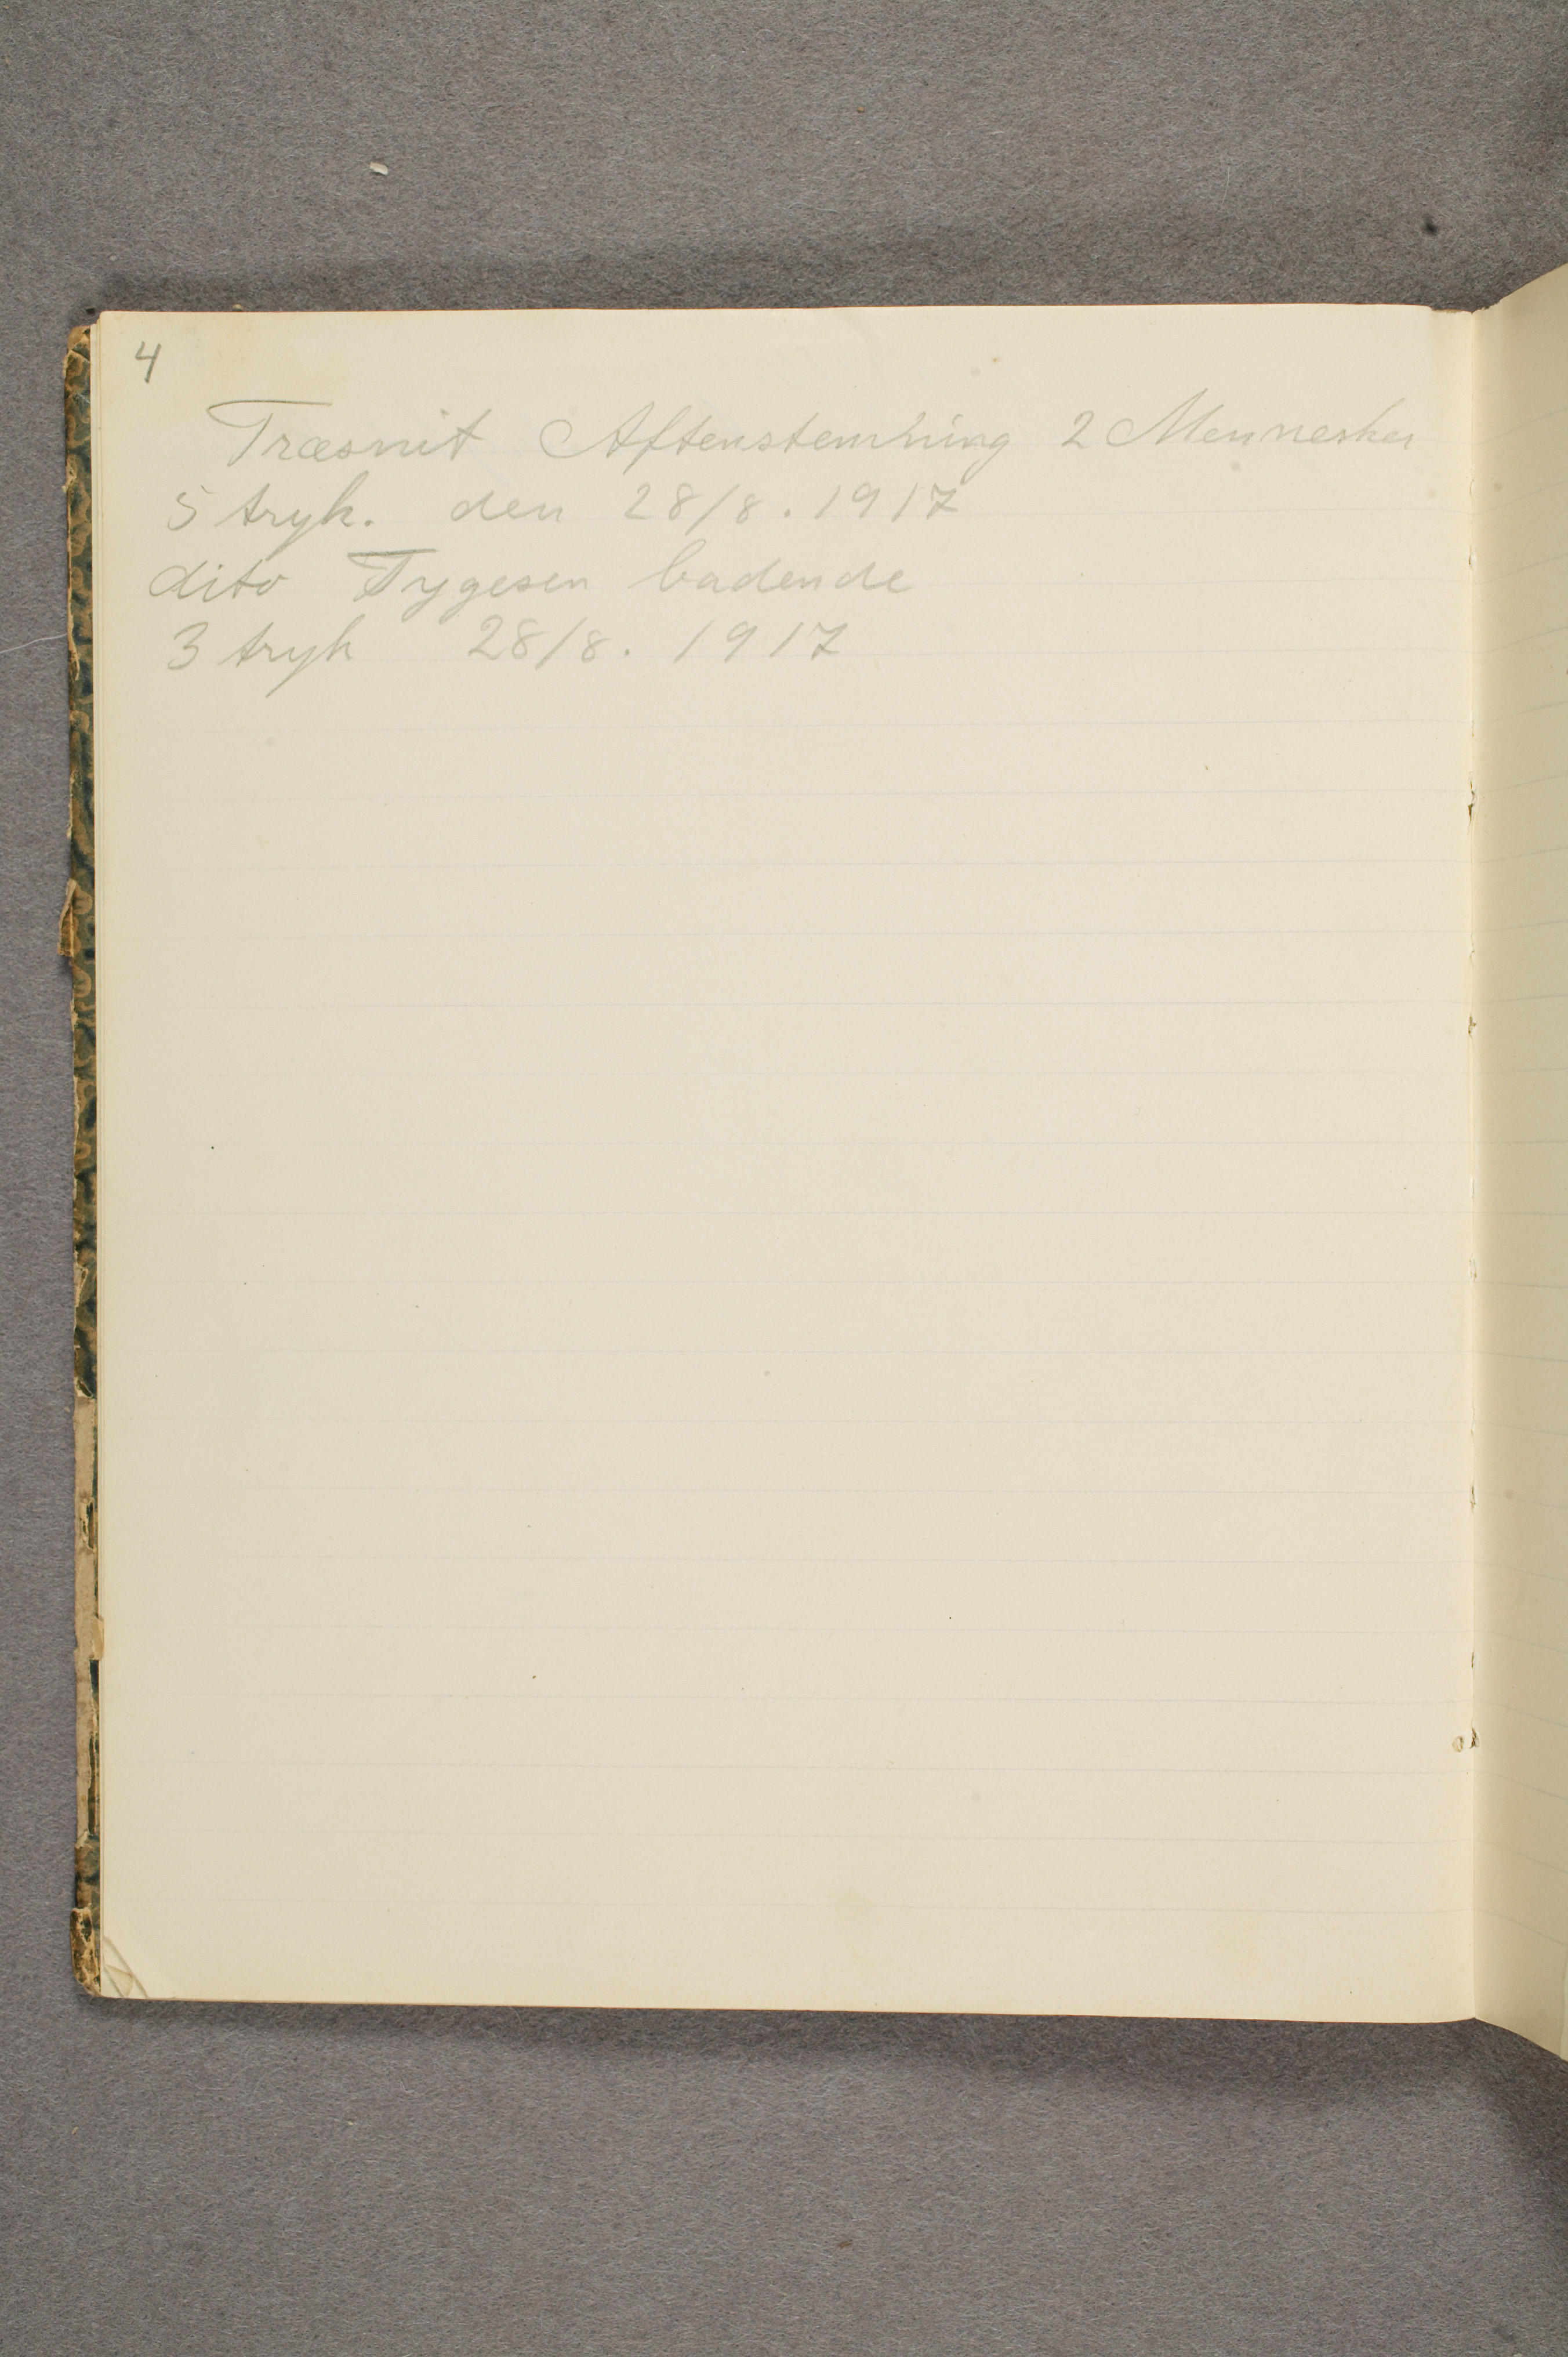 4
Træsnit Aftenstemning 2 Mennesker
5 tryk. den 28/8. 1917
dito Tygesen badende
3 tryk 28/8. 1917